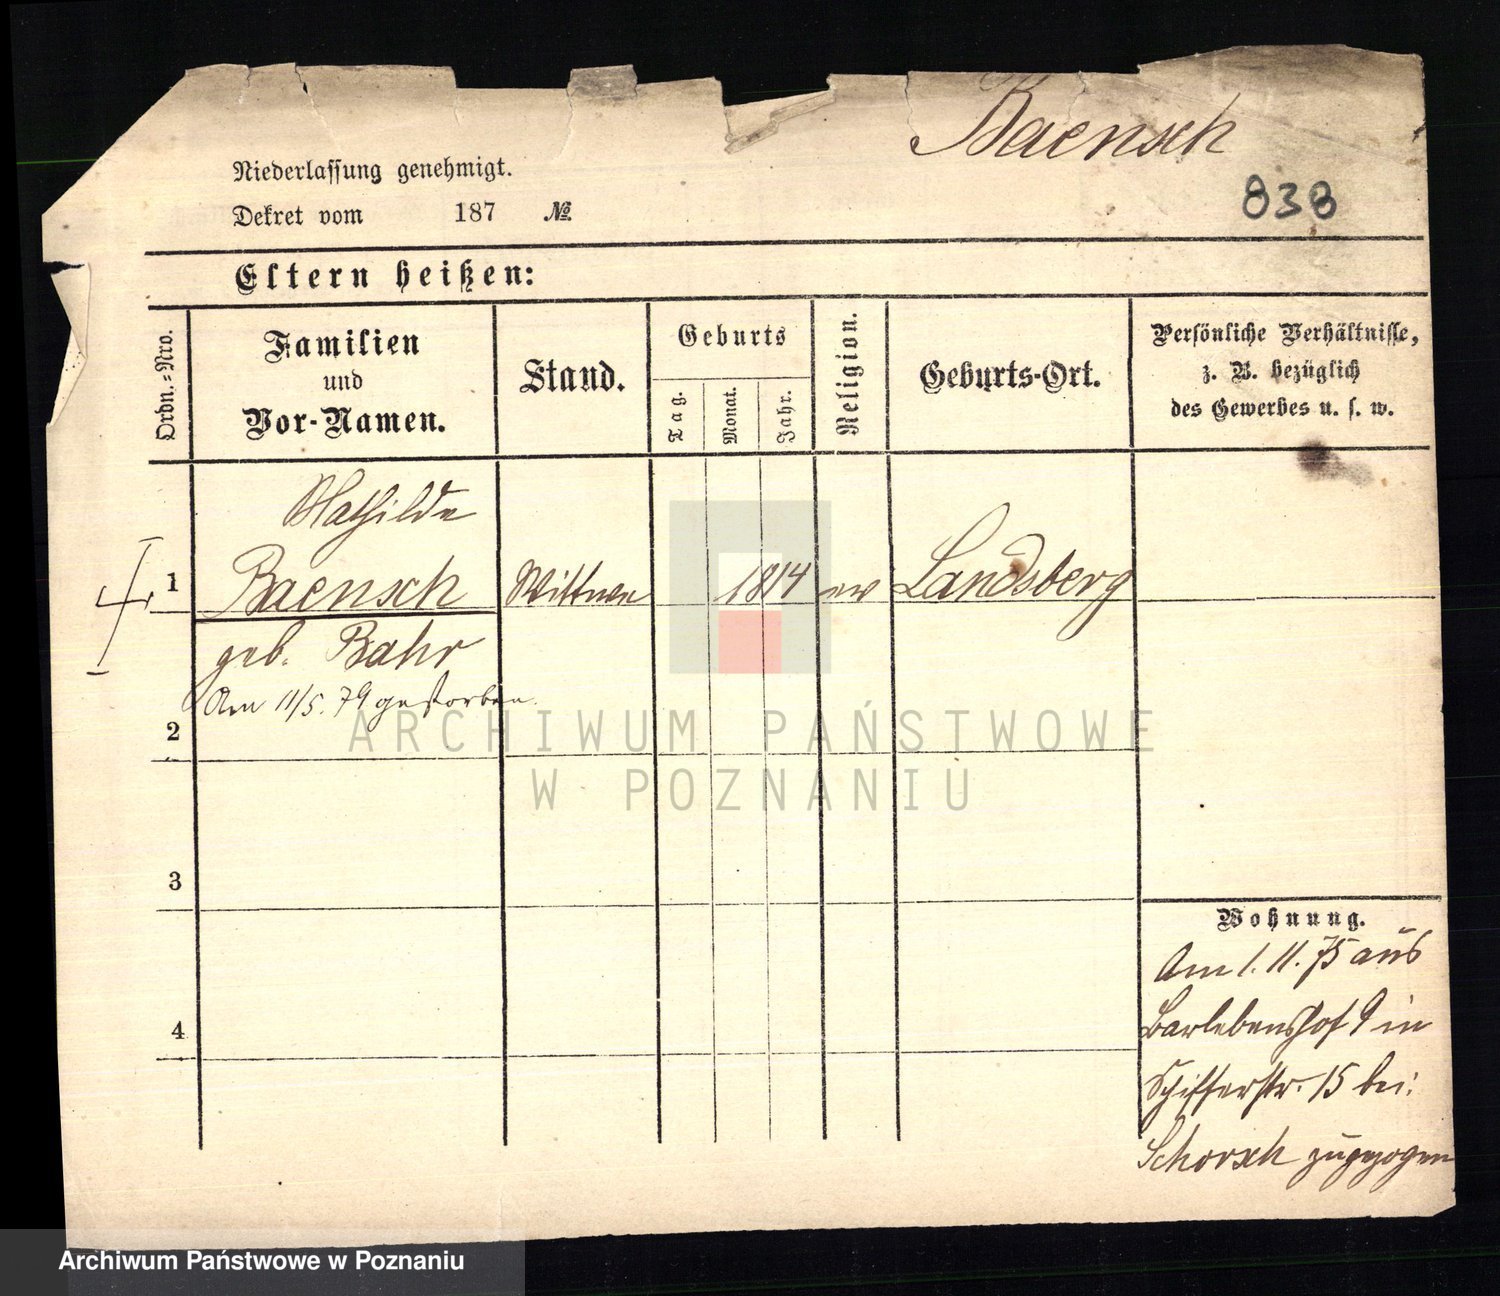 Baensch
Niederlassung genehmigt.
838
Dekret vom 187 №
Eltern heißen:
Ordn.=Nro.
Familien
und
Vor-Namen.
Stand.
Geburts
Tag.
Monat.
Jahr.
Religion.
Geburts-Ort.
Persönliche Verhältnisse,
z. B. bezüglich
des Gewerbes u. s. w.
Mathilde
1 Baensch Wittwe 1814 ev Landsberg
geb. Bahr
Am 11/5. 79 gestorben.
2
3
4
Wohnung.
Am 1. 11. 75 aus
Barlebenshof 9 in
Schifferstr. 15 bei:
Schorsch zugezogen
ARCHIWUM PAŃSTWOWE
W POZNANIU
Archiwum Państwowe w Poznaniu